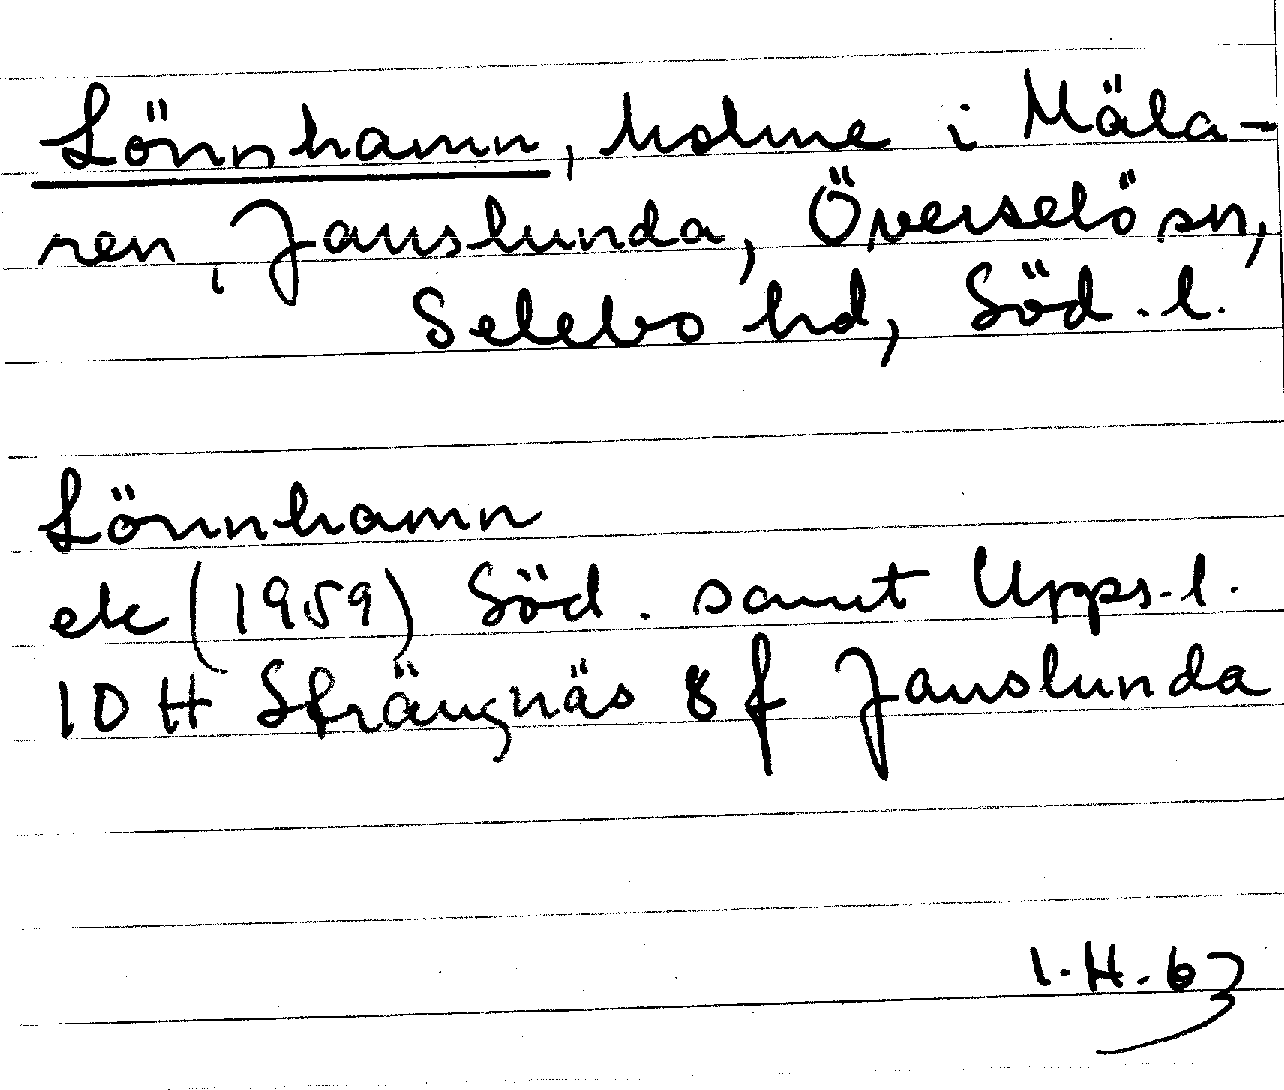 Lönnhamn, holme i Mäla-
ren, Janslunda, Överselö sn,
Selebo hd, Söd.l.
Lönnhamn
ek (1959) Söd. samt Upps.l.
10 H Strängnäs 8 f Janslunda
I.H.63